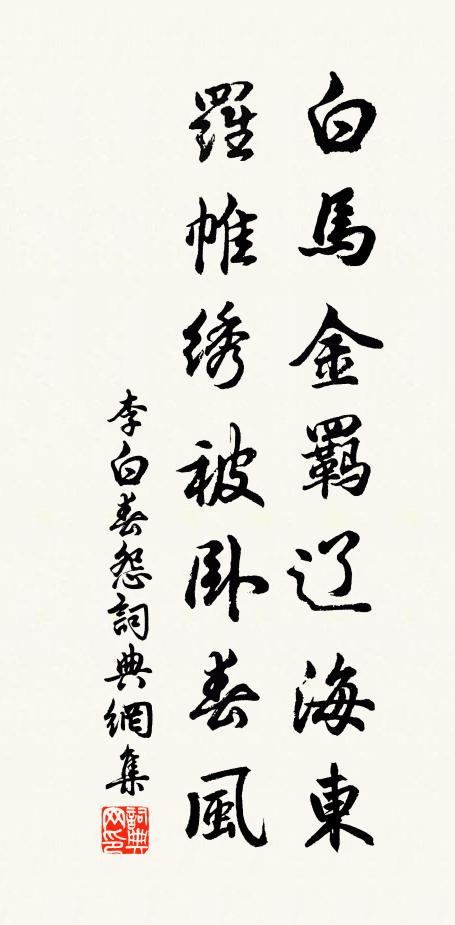 白馬金羈辽海東
羅帷绣被卧春風
李白春怨詞典網集
詞典网印